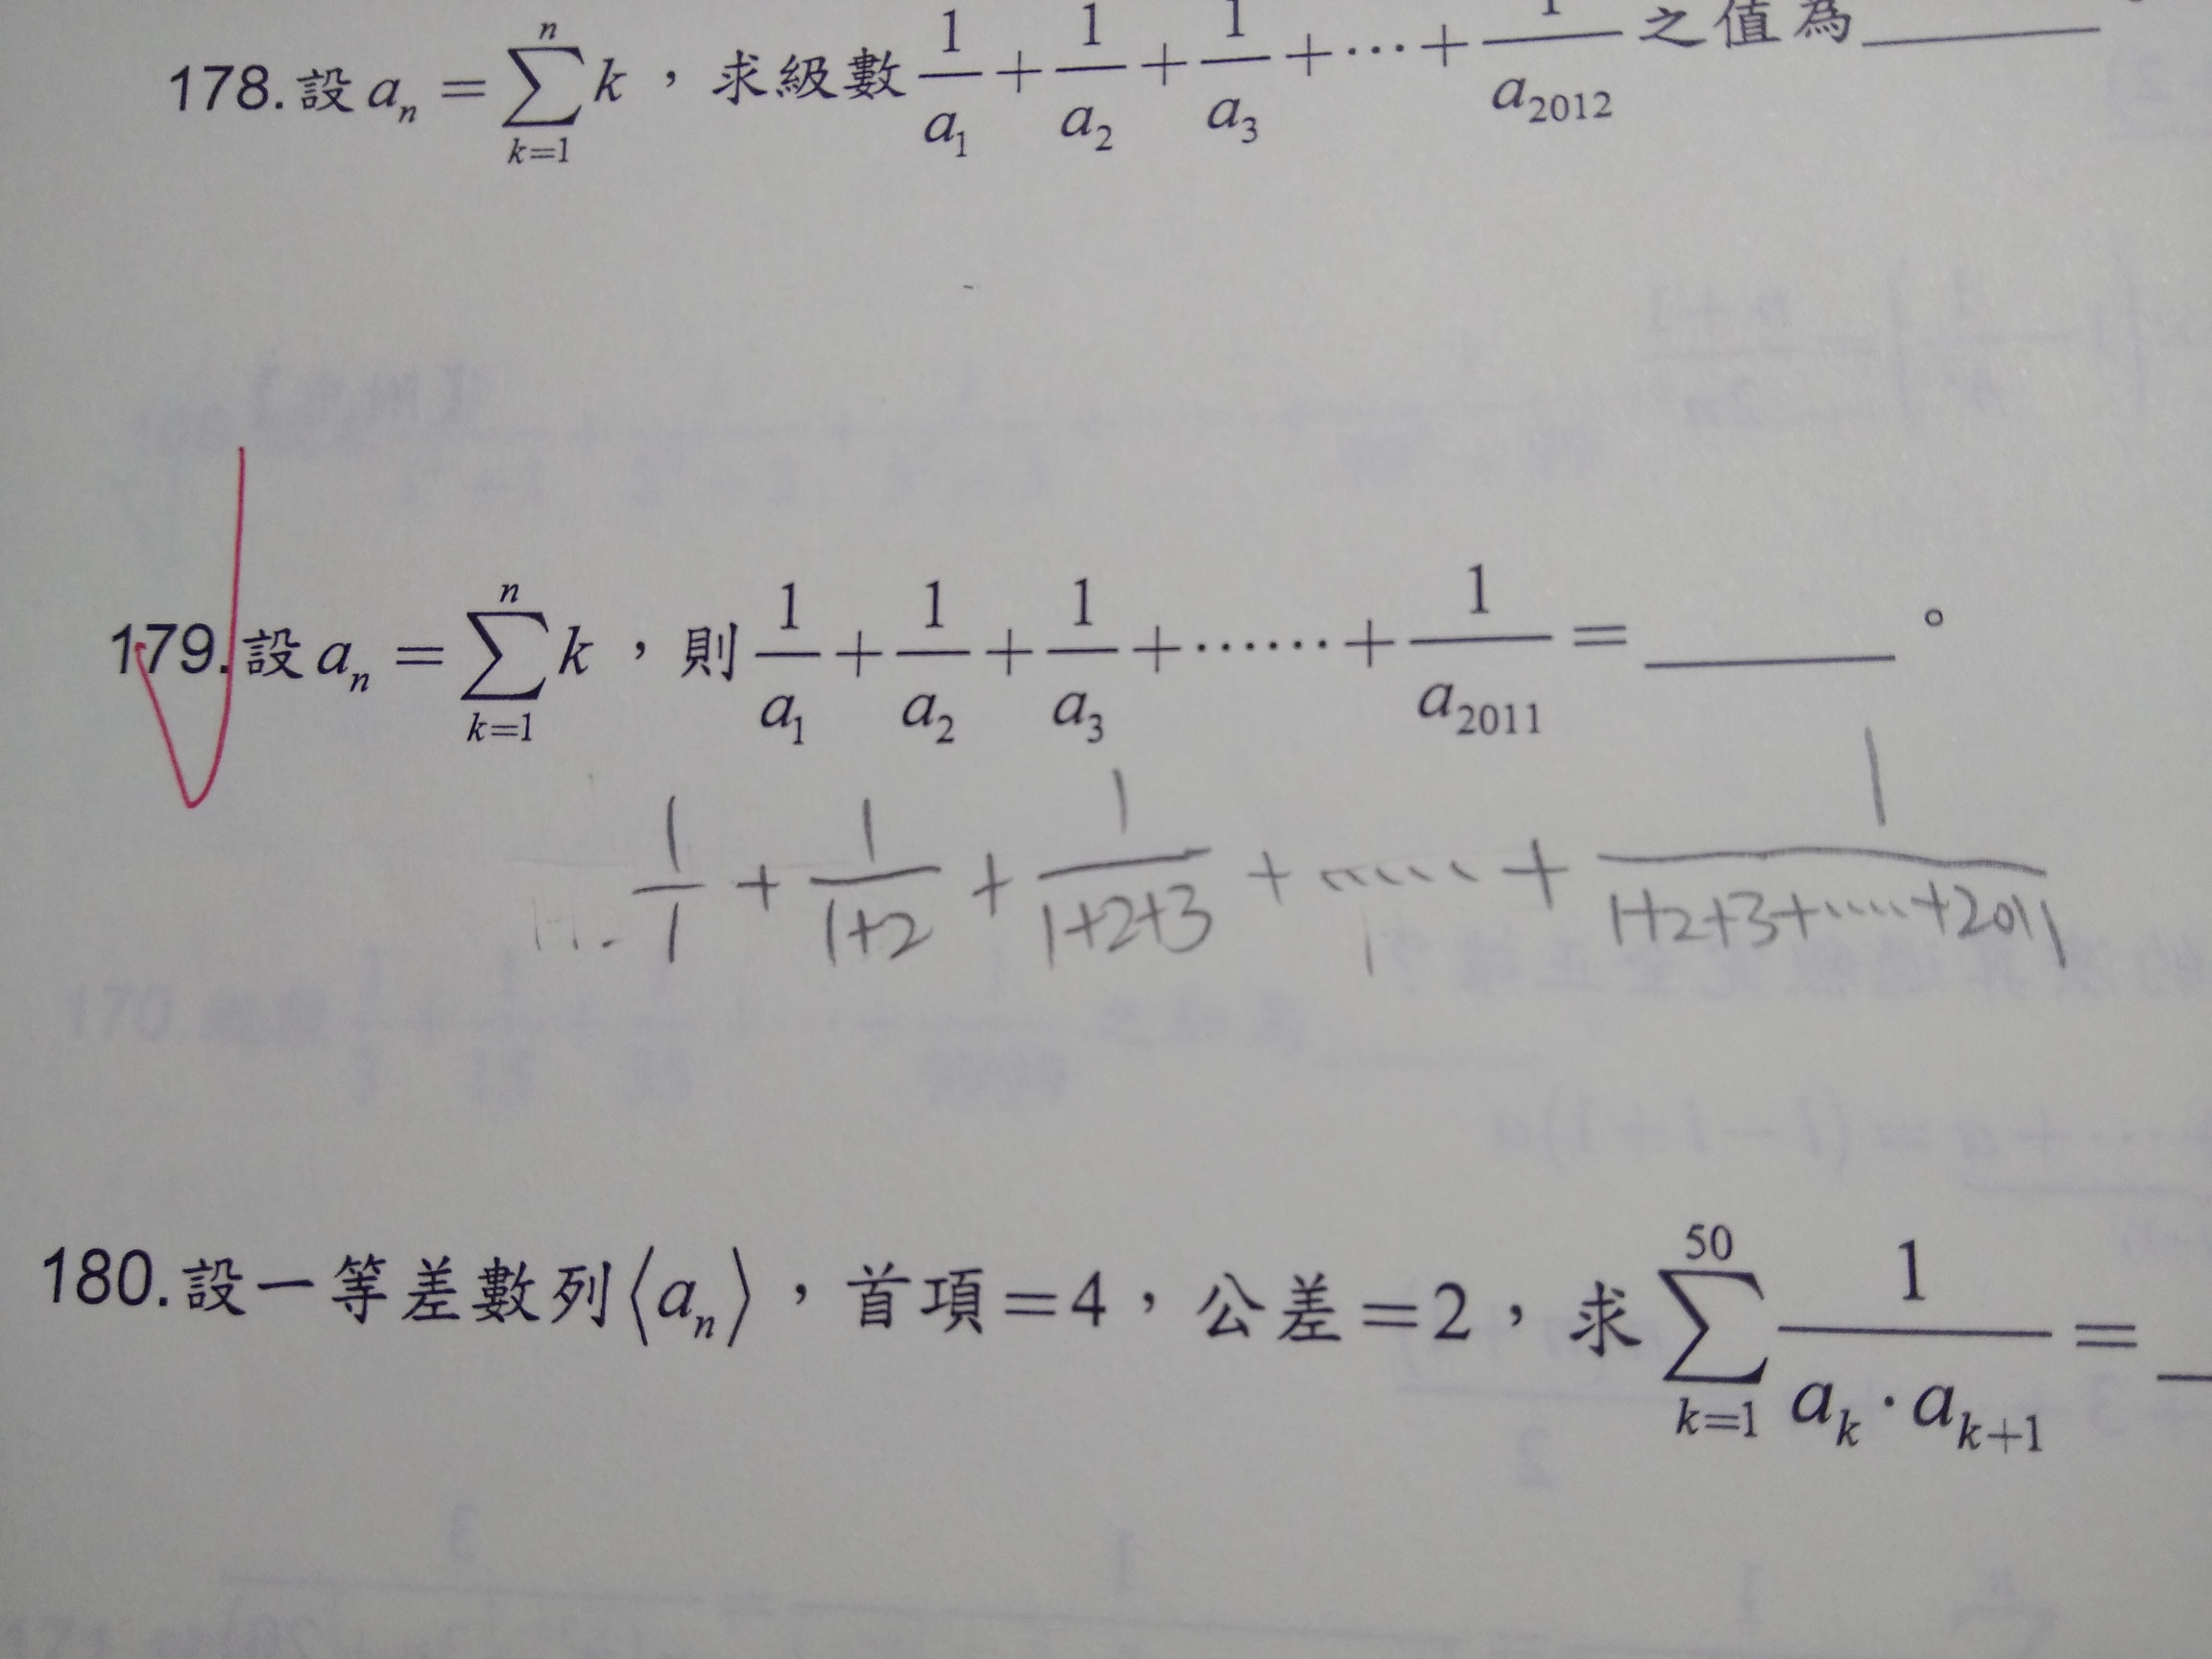 178.設 aₙ = ∑ₖ₌₁ⁿ k，求級數 1/a₁ + 1/a₂ + 1/a₃ + ⋯ + 1/a₂₀₁₂ 之值為______
179.設 aₙ = ∑ₖ₌₁ⁿ k，則 1/a₁ + 1/a₂ + 1/a₃ + ⋯⋯ + 1/a₂₀₁₁ = ______。
1/1 + 1/(1+2) + 1/(1+2+3) + ⋯⋯ + 1/(1+2+3+⋯⋯+2011)
180.設一等差數列⟨aₙ⟩，首項=4，公差=2，求 ∑ₖ₌₁⁵⁰ 1/(aₖ·aₖ₊₁) = __